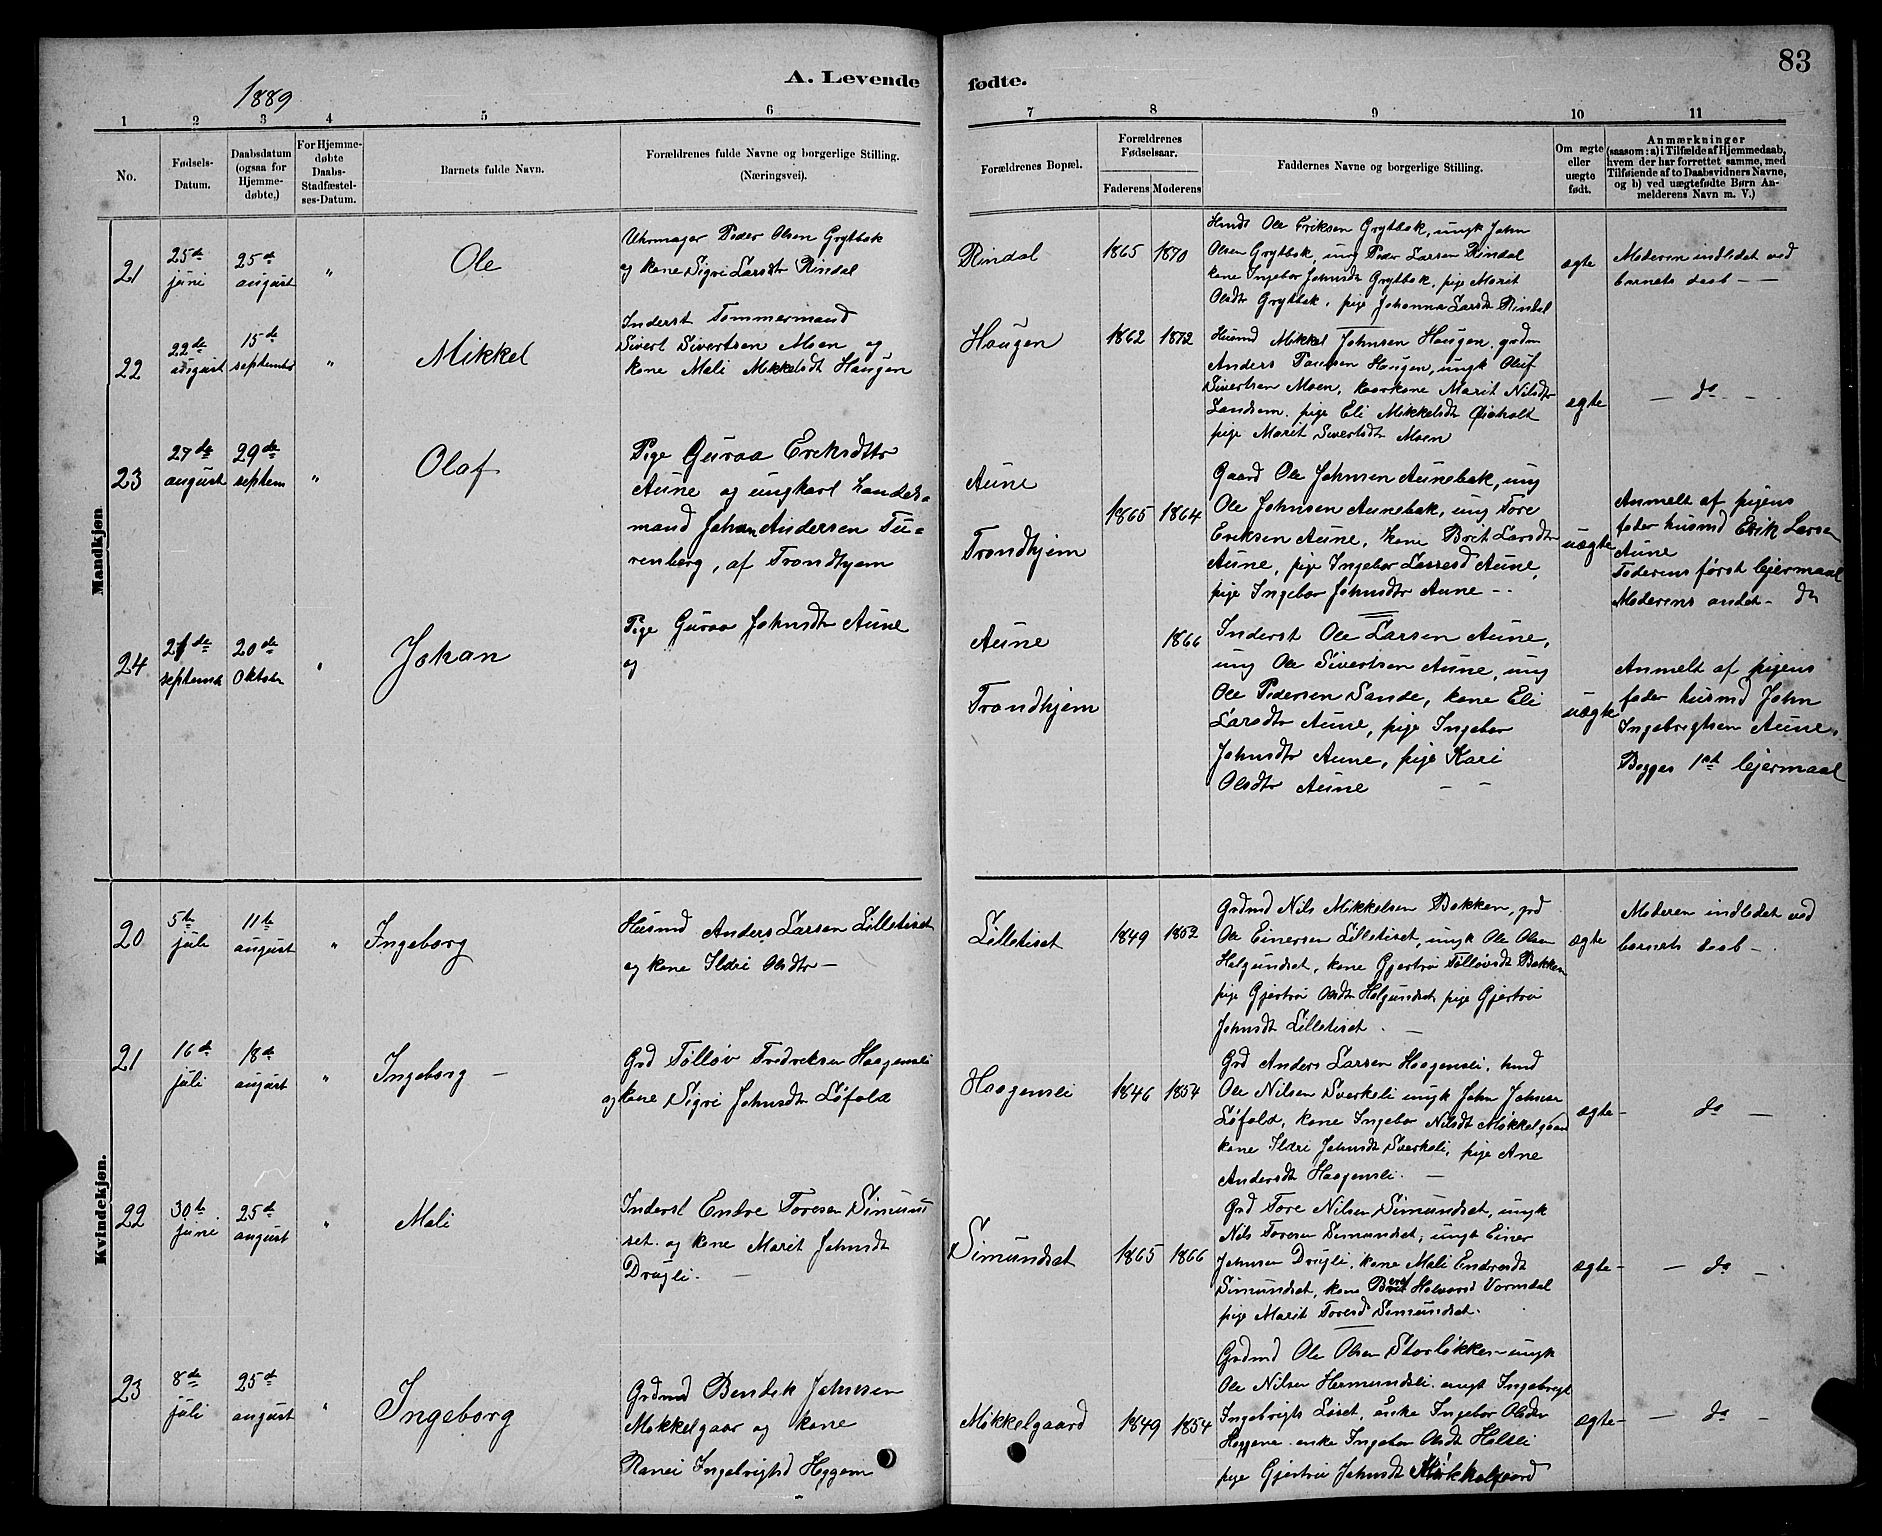 83
A. Levende fødte.
1889
1 2 3 4 5 6 7 8 9 10 11
No.
Fødsels-
Datum.
Daabsdatum
(ogsaa for
Hjemme-
døbte,)
For Hjemme-
døbte
Daabs-
Stadfæstel-
ses-Datum.
Barnets fulde Navn.
Forældrenes fulde Navne og borgerlige Stilling.
(Næringsvei).
Forældrenes Bopæl.
Forældrenes
Fødselsaar.
Faderens Moderens
Faddernes Navne og borgerlige Stilling.
Om ægte
eller
uægte
født.
Anmærkninger
(saasom: a) i Tilfælde af Hjemmedaab,
hvem der har forrettet samme, med
Tilføiende af to Daabsvidners Navne,
og b) ved uægtefødte Børn An-
melderens Navn m. V.)
Mandkjøn
21
25de
juni
25de
august
"
Ole
Uhrmager Peder Olsen Grytbak
og kone Sigri Larsdtr Rindal
Rindal
1865 1870
Husdt Ole Eriksen Grytbak, ungk John
Olsen Grytbak, ung Peder Larsen Rindal
kone Ingebor Johnsdtr Grytbak, pige Marit
Olsdtr Grytbak, pige Johanna Larsdtr Rindal
ægte
Moderen indledet ved
barnets daab - -
22
22de
august
15de
september
"
Mikkel
Inderst Tømmermand
Sivert Sivertsen Moen og
kone Mali Mikkelsdt Haugen
Haugen
1862 1872
Husmd Mikkel Johnsen Haugen, grdm
Anders Paulsen Haugen, ungk Oluf
Sivertsen Moen, kaarkone Marit Nilsdtr
Landsem, pige Eli Mikkelsdt Øiaholt
pige Marit Sivertsdt Moen
ægte
- do - -
23
27de
august
29de
septem
"
Olaf
Pige Guraa Eriksdttr
Aune og ungkarl handels-
mand Johan Andersen Tu-
renberg, af Trondhjem
Aune
Trondhjem
1865 1864
Gaard Ole Johnsen Aunebak, ung
Ole Johnsen Aunebak, ung Tore
Eriksen Aune, kone Brit Larsdtr
Aune, pige Ingebor Larsd Aune,
pige Ingebor Johnsdtr Aune - -
uægte
Anmelt af pigens
fader husmd Erik Larsen
Aune
Faderens först lejermaal
Moderens andet - do
24
21de
septemb
20de
Oktober
"
Johan
Pige Guraa Johnsdtr Aune
og
Aune
Trondhjem
1866
Inderst Ole Larsen Aune,
ung Ole Sivertsen Aune, ung
Ole Pedersen Sande, kone Eli
Larsdtr Aune, pige Ingebor
Johnsdtr Aune, pige Kari
Olsdtr Aune - -
uægte
Anmelt af pigens
fader husmd John
Ingebrigtsen Aune.
Begges 1st lejermaal
Kvindekjøn.
20
5te
juli
11te
august
"
Ingeborg
Husmd Anders Larsen Lilletiset
og kone Ildri Olsdtr -
Lilletiset
1849 1852
Grdmd Nils Mikkelsen Bakken, grd
Ole Einersen Lilletiset, ungk Ole Olsen
Helgundset, kone Gjertrü Tölløvsdt Bakken
pige Gjertrü Olsdt Helgundset pige Gjertrü
Johnsdt Lilletiset. -
ægte
Moderen indledet ved
barnets daab -
21
16de
juli
18de
august
"
Ingeborg -
Grd Tölløv Fredreksen Haagensli
og kone Sigri Johnsdt Løfald
Haagensli
1846 1854
Grd Anders Larsen Haagensli, husd
Ole Nilsen Sverkeli ungk John Johnsen
Løfald, kone Ingebor Nilsdt Mikkelgaard
kone Ildri Johnsdt Sverkeli, pige Ane
Andersdt Haagensli. -
ægte -
do -
22
30te
juni
25de
august
"
Mali
Inderst Endre Toresen Simund
set. og kone Marit Johnsdt
Drugli. -
Simundset
1865 1866
Grd Tore Nilsen Simundset, ungk
Nils Toresen Simundset, ungk Einer
Johnsen Drugli, kone Mali Endresdt
Simundset, kone Berit Halvorsd Vormdal
pige Marit Toresd Simundset.
ægte -
- do -
23
8de
juli
25de
august
"
Ingeborg
Grdmd Bendik Johnsen
Mikkelgaar og kone
Ranei Ingebrigtsd Heggem
Mikkelgaard
1849 1854
Grdmd Ole Olsen Storløkken ungk
Ole Nilsen Hermundsli. ungk Ingebrigt
Ingebrigts Løset, enke Ingebor Olsdtr
Heggene. enke Ingebor Olsdt Halsli
pige Gjertrü Johnsdt Mikkelgaard
ægte -
- do -